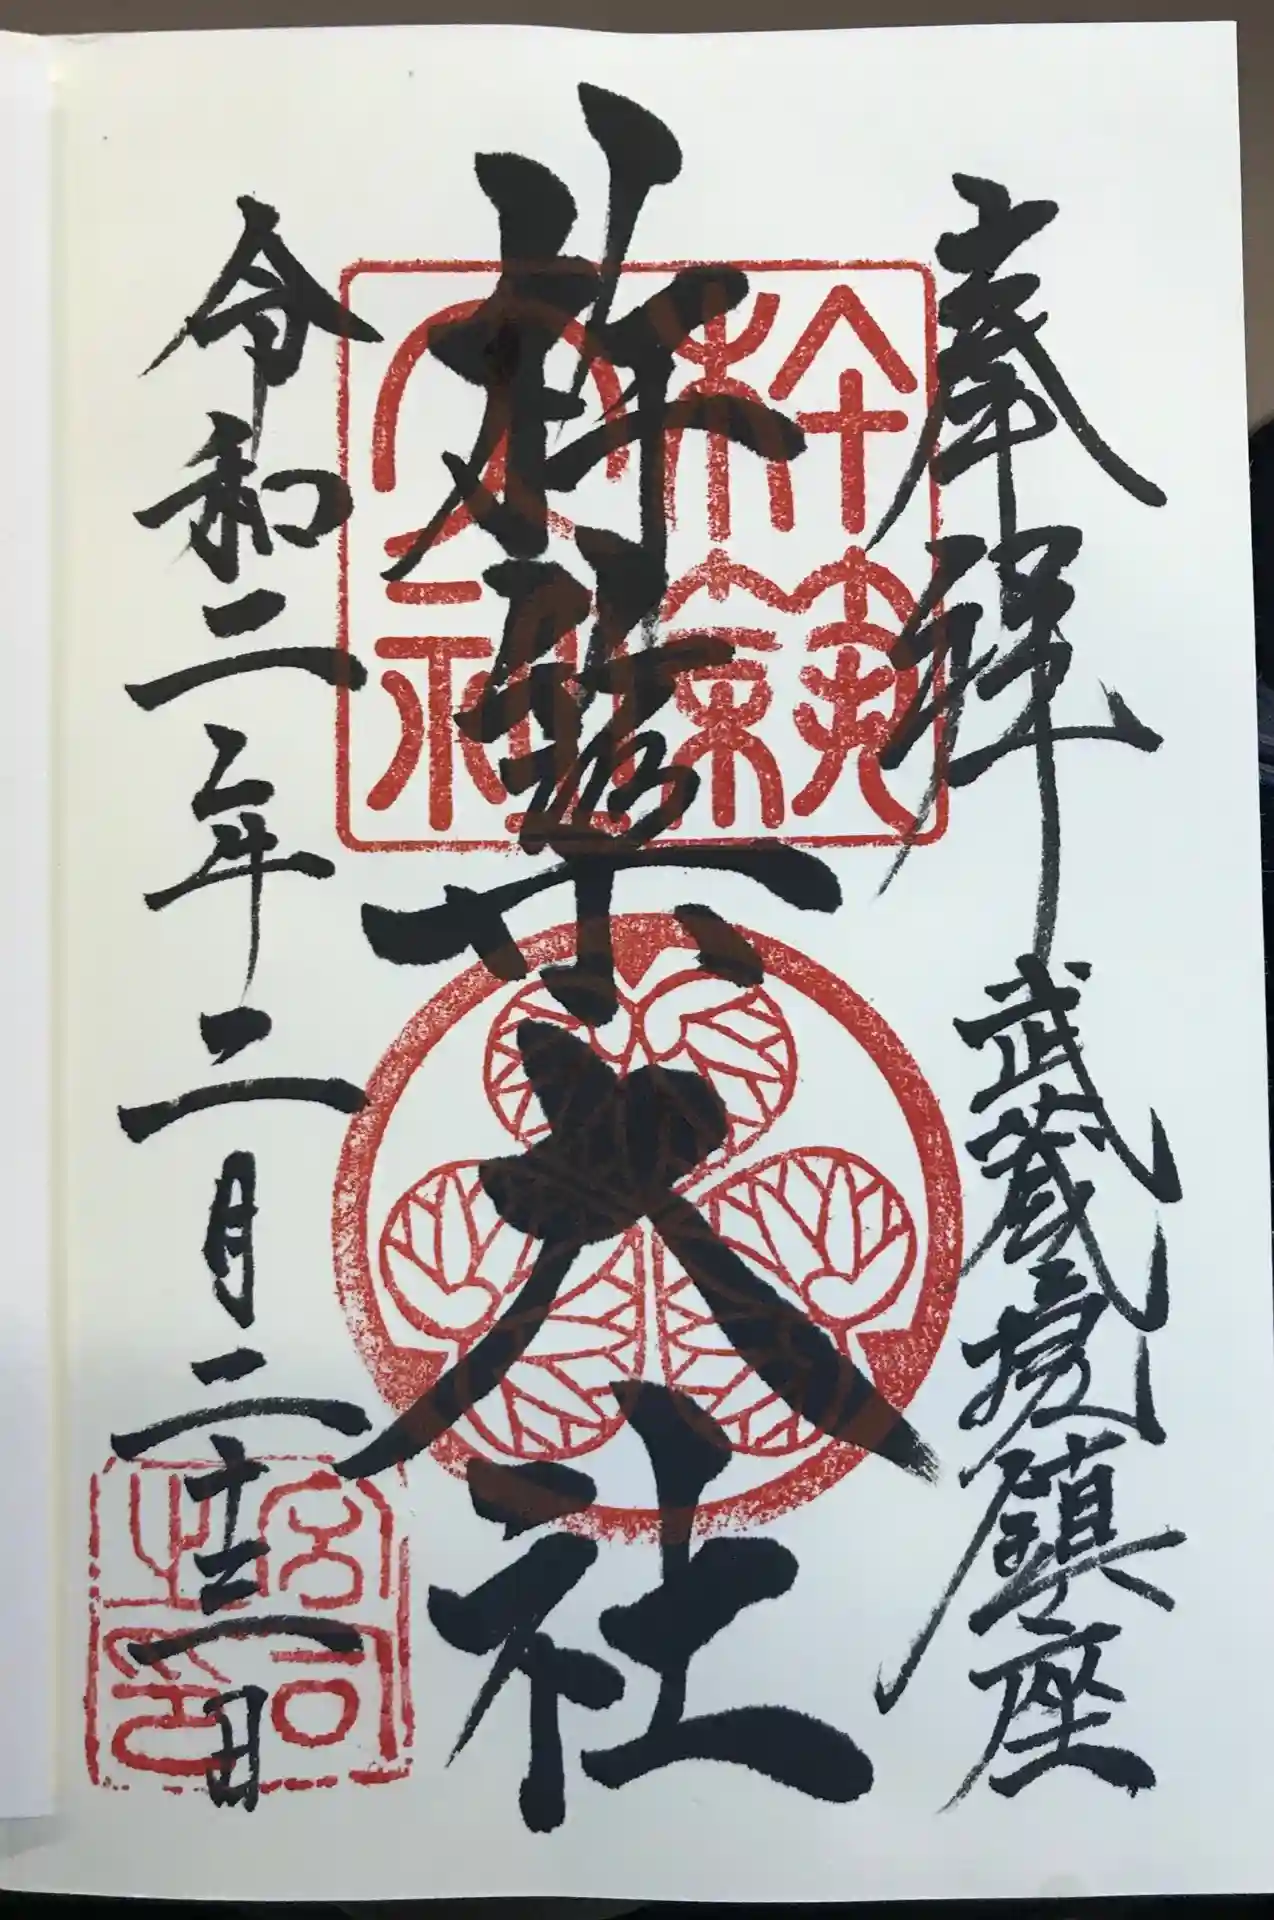 奉拝 武蔵境鎮座
杵築大社
令和二年二月二十三日
杵築大社
宮司之印